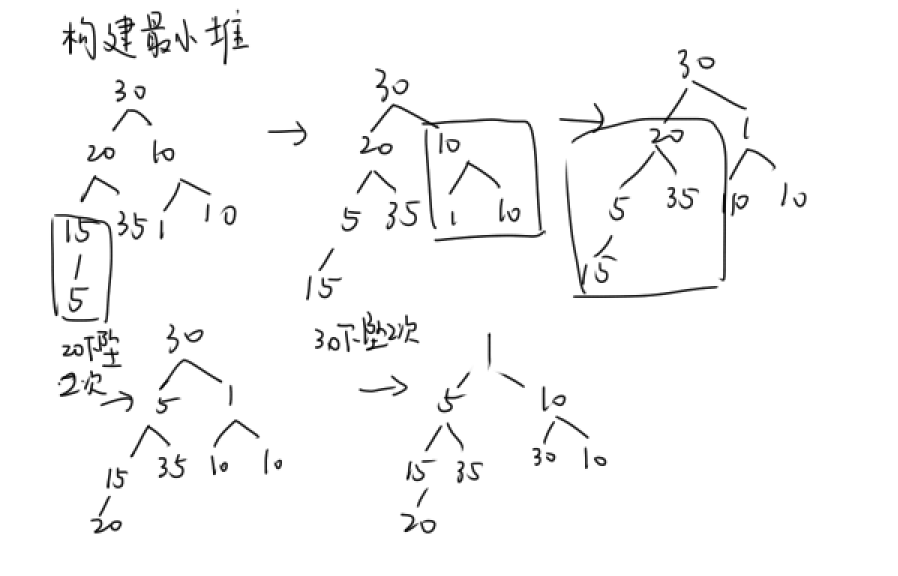 构建最小堆
30
20 10
15 35 1 10
5
→
30
20 10
5 35 1 10
15
→
30
20 1
5 35 10 10
15
20下坠
2次 →
30
5 1
15 35 10 10
20
30下坠2次
→
1
5 10
15 35 30 10
20